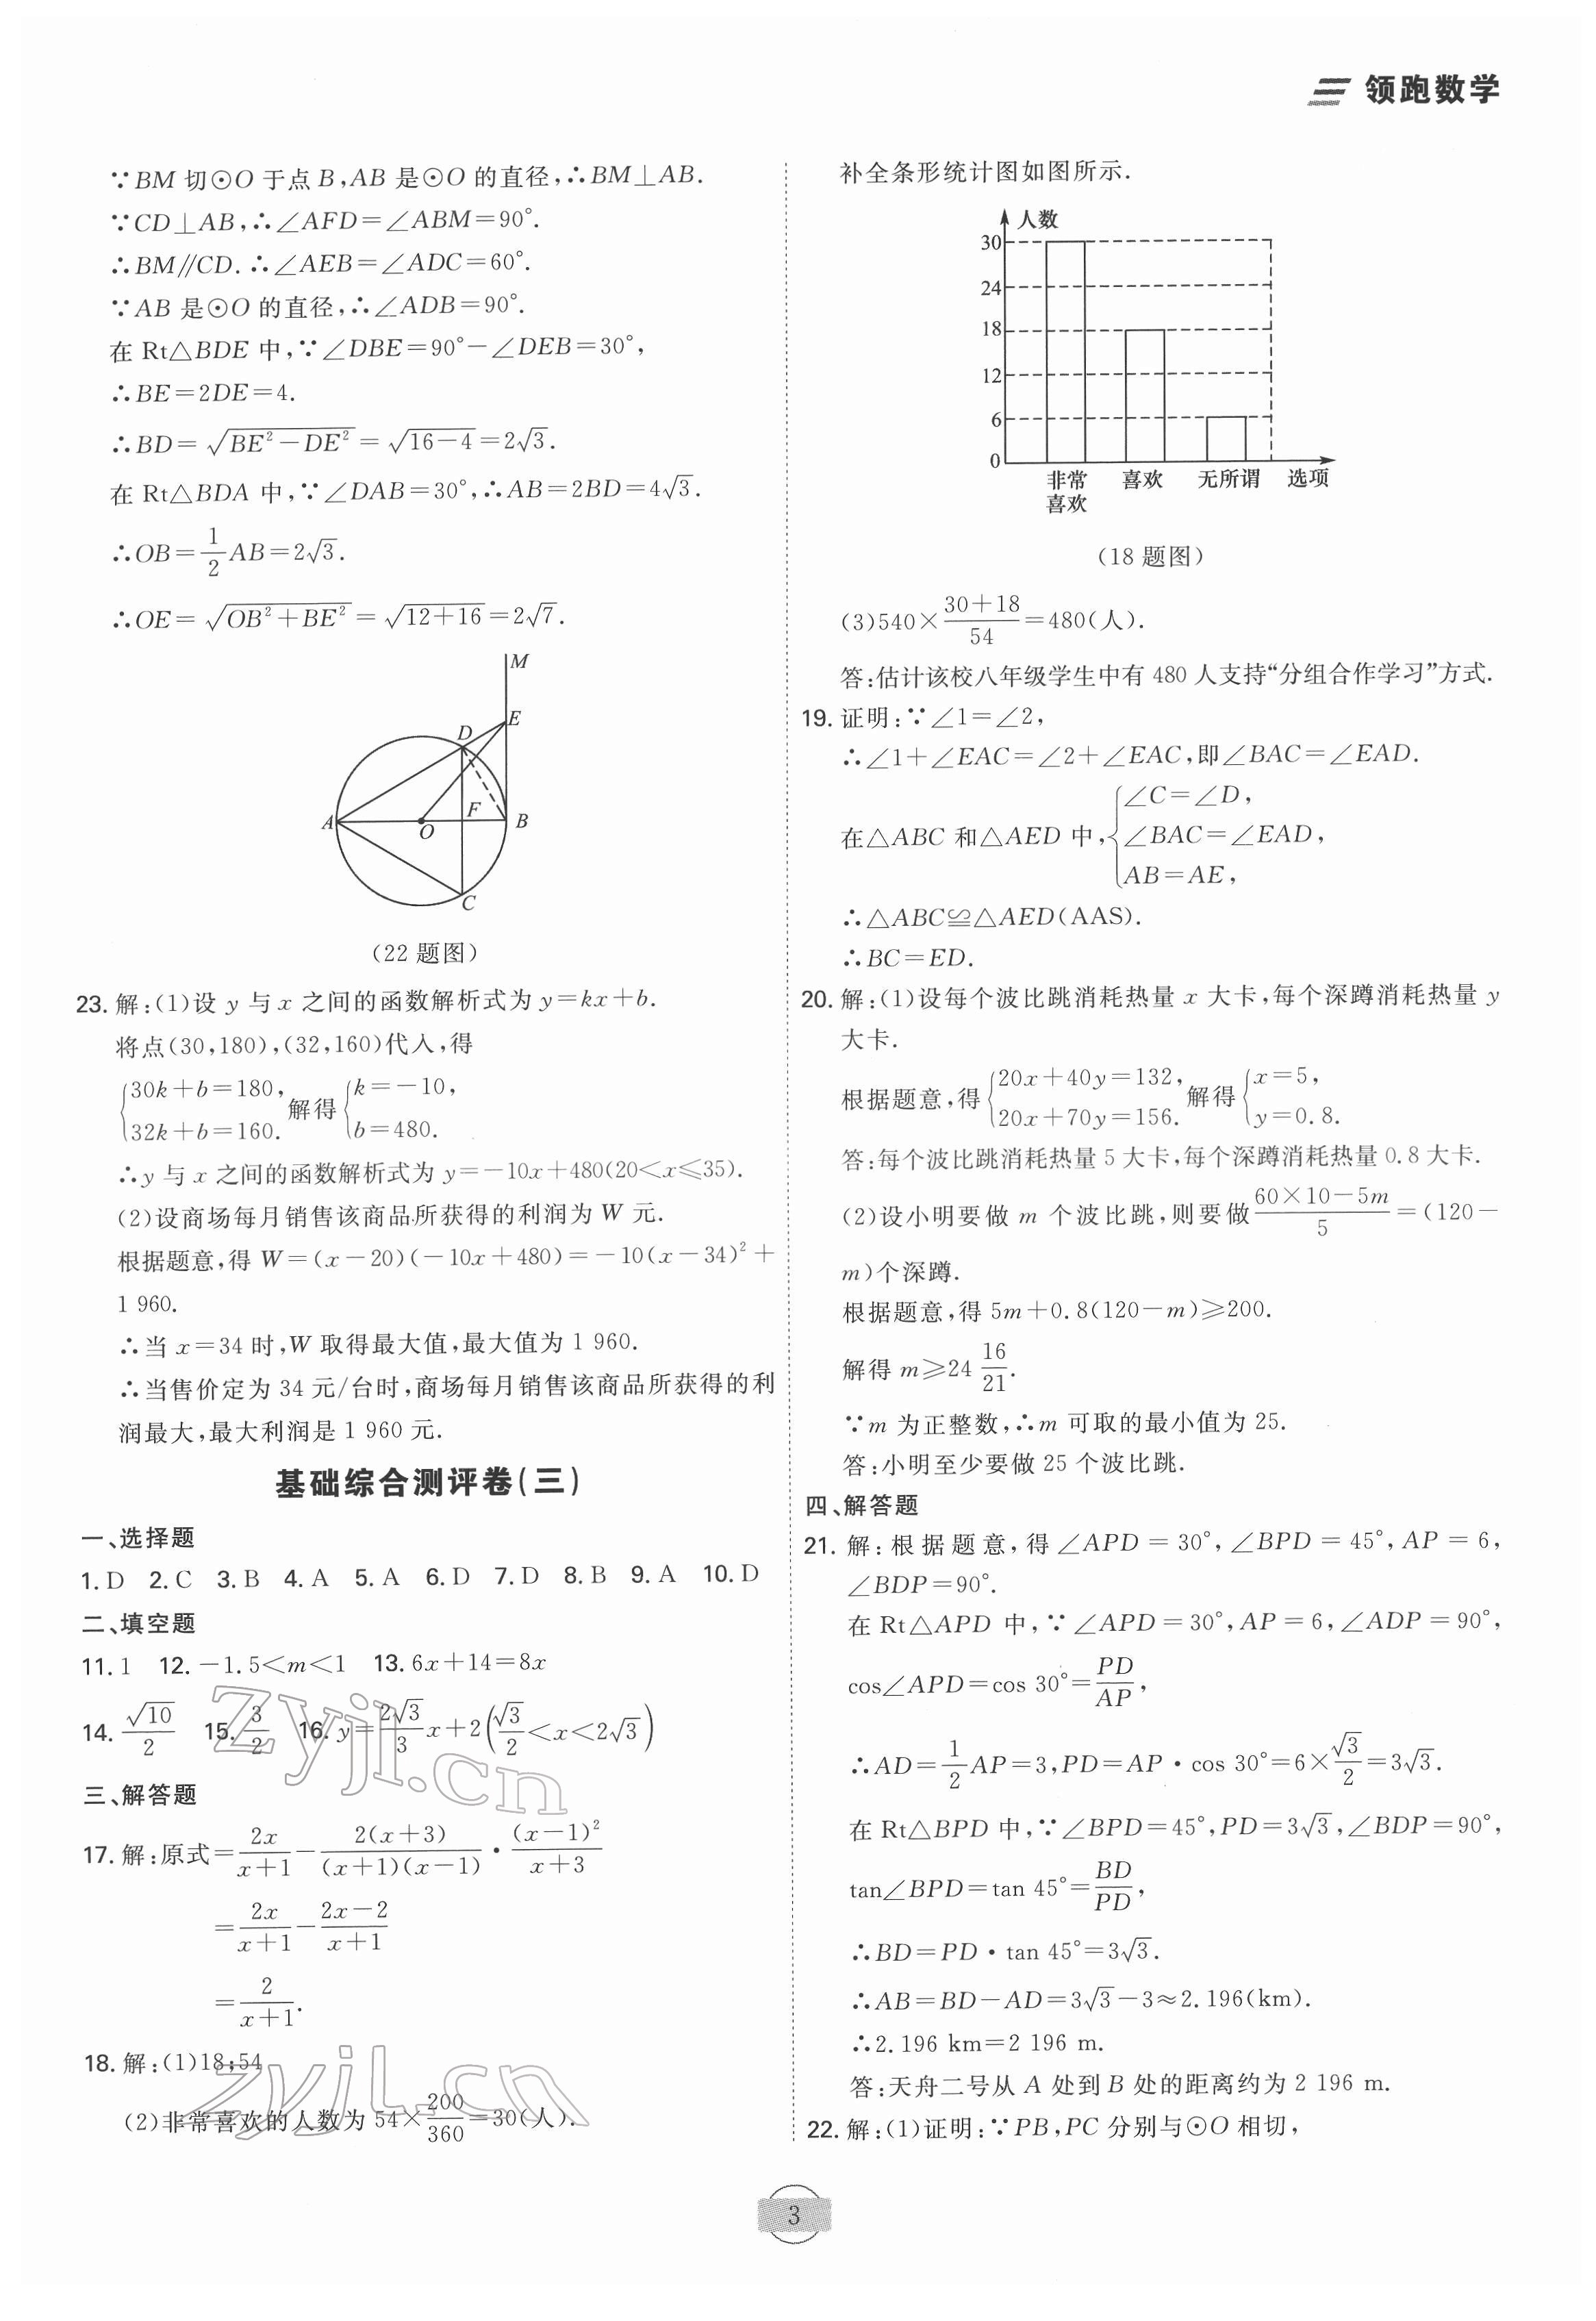 领跑数学
∵BM 切⊙O 于点 B,AB 是⊙O 的直径,∴BM⊥AB.
∵CD⊥AB,∴∠AFD=∠ABM=90°.
∴BM∥CD.∴∠AEB=∠ADC=60°.
∵AB 是⊙O 的直径,∴∠ADB=90°.
在 Rt△BDE 中,∵∠DBE=90°-∠DEB=30°,
∴BE=2DE=4.
∴BD=√(BE²-DE²)=√(16-4)=2√3.
在 Rt△BDA 中,∵∠DAB=30°,∴AB=2BD=4√3.
∴OB=1/2 AB=2√3.
∴OE=√(OB²+BE²)=√(12+16)=2√7.
M
E
D
F
A
O
B
C
(22 题图)
23. 解:(1)设 y 与 x 之间的函数解析式为 y=kx+b.
将点(30,180),(32,160)代入,得
{30k+b=180, 32k+b=160. 解得{k=-10, b=480.
∴y 与 x 之间的函数解析式为 y=-10x+480(20<x≤35).
(2)设商场每月销售该商品所获得的利润为 W 元.
根据题意,得 W=(x-20)(-10x+480)=-10(x-34)²+
1 960.
∴当 x=34 时,W 取得最大值,最大值为 1 960.
∴当售价定为 34 元/台时,商场每月销售该商品所获得的利
润最大,最大利润是 1 960 元.
基础综合测评卷(三)
一、选择题
1. D 2. C 3. B 4. A 5. A 6. D 7. D 8. B 9. A 10. D
二、填空题
11. 1 12. -1.5<m<1 13. 6x+14=8x
14. √10/2 15. 3/2 16. y=2√3/3 x+2(√3/2<x<2√3)
三、解答题
17. 解:原式=2x/(x+1)-2(x+3)/((x+1)(x-1))·(x-1)²/(x+3)
=2x/(x+1)-(2x-2)/(x+1)
=2/(x+1).
18. 解:(1)18;54
(2)非常喜欢的人数为 54×200/360=30(人).
zyjl.cn
zyjl.cn
补全条形统计图如图所示.
人数
30
24
18
12
6
0
非常喜欢 喜欢 无所谓 选项
(18 题图)
(3)540×(30+18)/54=480(人).
答:估计该校八年级学生中有 480 人支持“分组合作学习”方式.
19. 证明:∵∠1=∠2,
∴∠1+∠EAC=∠2+∠EAC,即∠BAC=∠EAD.
在△ABC 和△AED 中,{∠C=∠D, ∠BAC=∠EAD, AB=AE,
∴△ABC≌△AED(AAS).
∴BC=ED.
20. 解:(1)设每个波比跳消耗热量 x 大卡,每个深蹲消耗热量 y
大卡.
根据题意,得{20x+40y=132, 20x+70y=156. 解得{x=5, y=0.8.
答:每个波比跳消耗热量 5 大卡,每个深蹲消耗热量 0.8 大卡.
(2)设小明要做 m 个波比跳,则要做(60×10-5m)/5=(120-
m)个深蹲.
根据题意,得 5m+0.8(120-m)≥200.
解得 m≥24 16/21.
∵m 为正整数,∴m 可取的最小值为 25.
答:小明至少要做 25 个波比跳.
四、解答题
21. 解:根据题意,得∠APD=30°,∠BPD=45°,AP=6,
∠BDP=90°.
在 Rt△APD 中,∵∠APD=30°,AP=6,∠ADP=90°,
cos∠APD=cos 30°=PD/AP,
∴AD=1/2 AP=3,PD=AP·cos 30°=6×√3/2=3√3.
在 Rt△BPD 中,∵∠BPD=45°,PD=3√3,∠BDP=90°,
tan∠BPD=tan 45°=BD/PD,
∴BD=PD·tan 45°=3√3.
∴AB=BD-AD=3√3-3≈2.196(km).
∴2.196 km=2 196 m.
答:天舟二号从 A 处到 B 处的距离约为 2 196 m.
22. 解:(1)证明:∵PB,PC 分别与⊙O 相切,
3